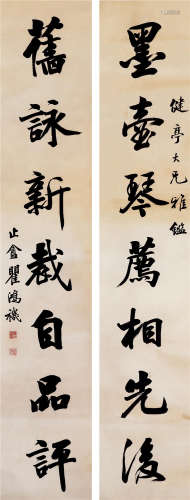 健亭大兄雅鑑
墨壺琴薦相先後
舊詠新裁自品評
止盦瞿鴻禨